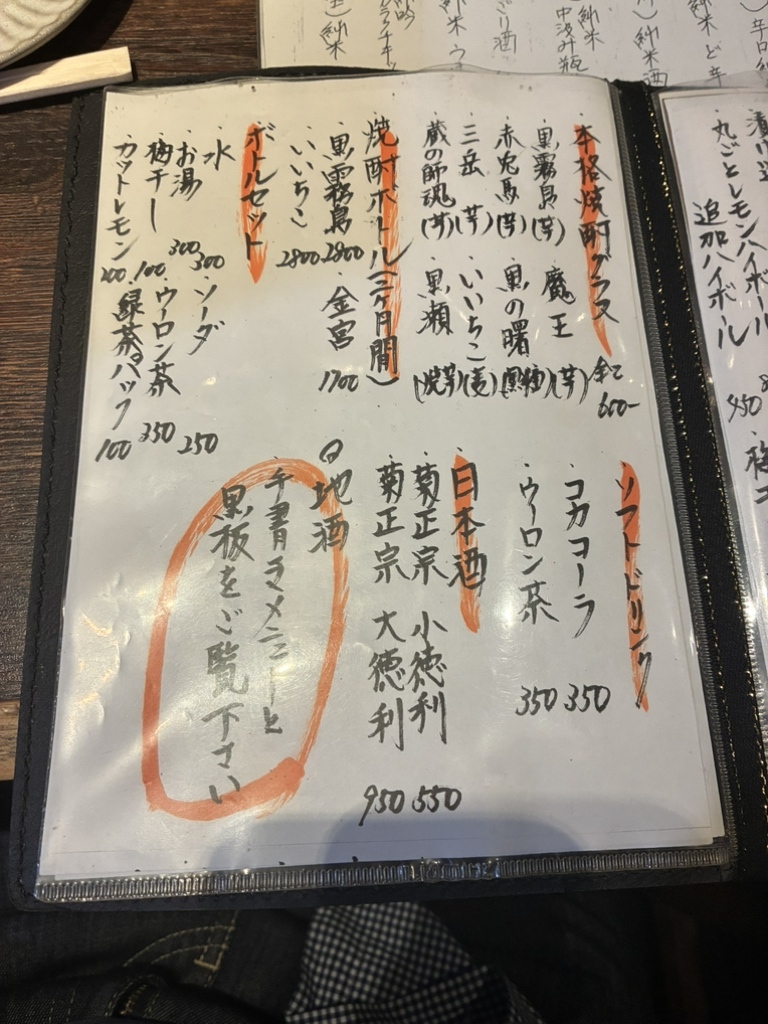 本格焼酎グラス 全て600-
・黒霧島(芋)
・魔王(芋)
・赤兎馬(芋)
・黒の曙
・三岳(芋)
・いいちこ(麦)
・蔵の師魂(芋)
・黒瀬(焼芋)
焼酎ボトル(三ヶ月間)
・黒霧島 2800
・金宮 1700
・いいちこ 2800
ボトルセット
・水 300
・ソーダ 250
・お湯 300
・ウーロン茶 350
・梅干し 100
・緑茶パック 100
・カットレモン 100
・ソフトドリンク
・コカコーラ 350
・ウーロン茶 350
・日本酒
・菊正宗 小徳利 550
・菊正宗 大徳利 950
地酒
・手書きメニーと
黒板をご覧下さい
丸ごとレモンハイボール
追加ハイボール 450
純米
純米
純米酒